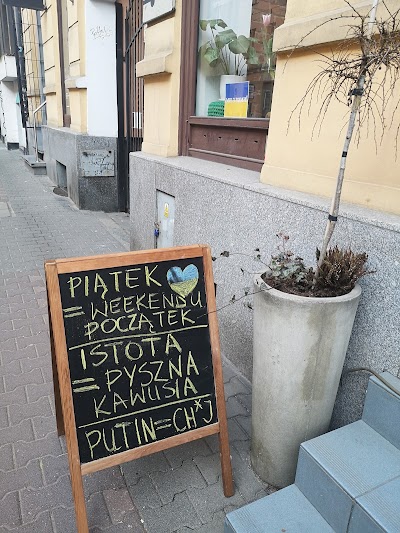 PIĄTEK
= WEEKENDU
POCZĄTEK
ISTOTA
= PYSZNA
KAWUSIA
PUTIN=CH*J